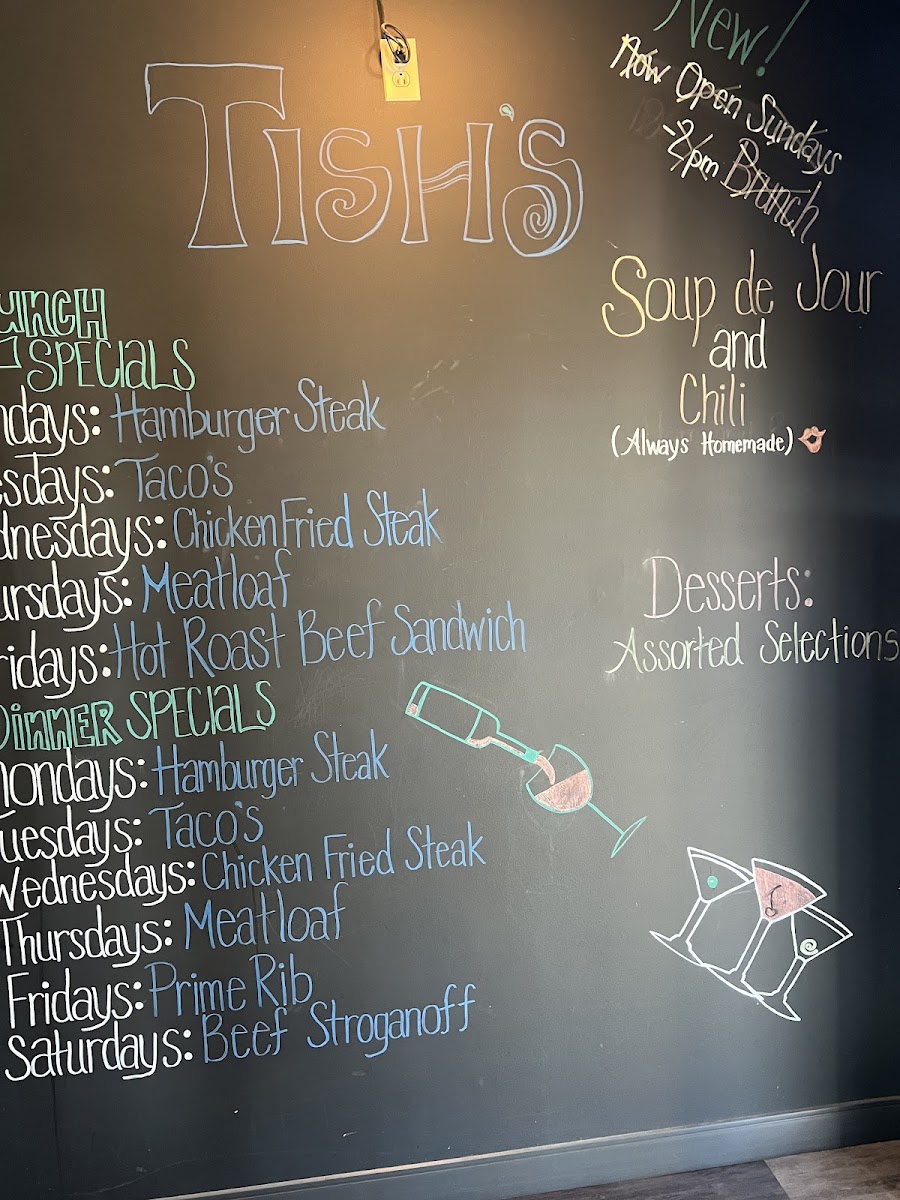 TISH'S
New!
Now Open Sundays
-2pm Brunch
Soup de Jour
and
Chili
(Always Homemade)
Desserts:
Assorted Selections
unch
SPECIALS
ndays: Hamburger Steak
esdays: Taco's
dnesdays: Chicken Fried Steak
ursdays: Meatloaf
ridays: Hot Roast Beef Sandwich
Dinner SPECIALS
Mondays: Hamburger Steak
uesdays: Taco's
Wednesdays: Chicken Fried Steak
Thursdays: Meatloaf
Fridays: Prime Rib
Saturdays: Beef Stroganoff